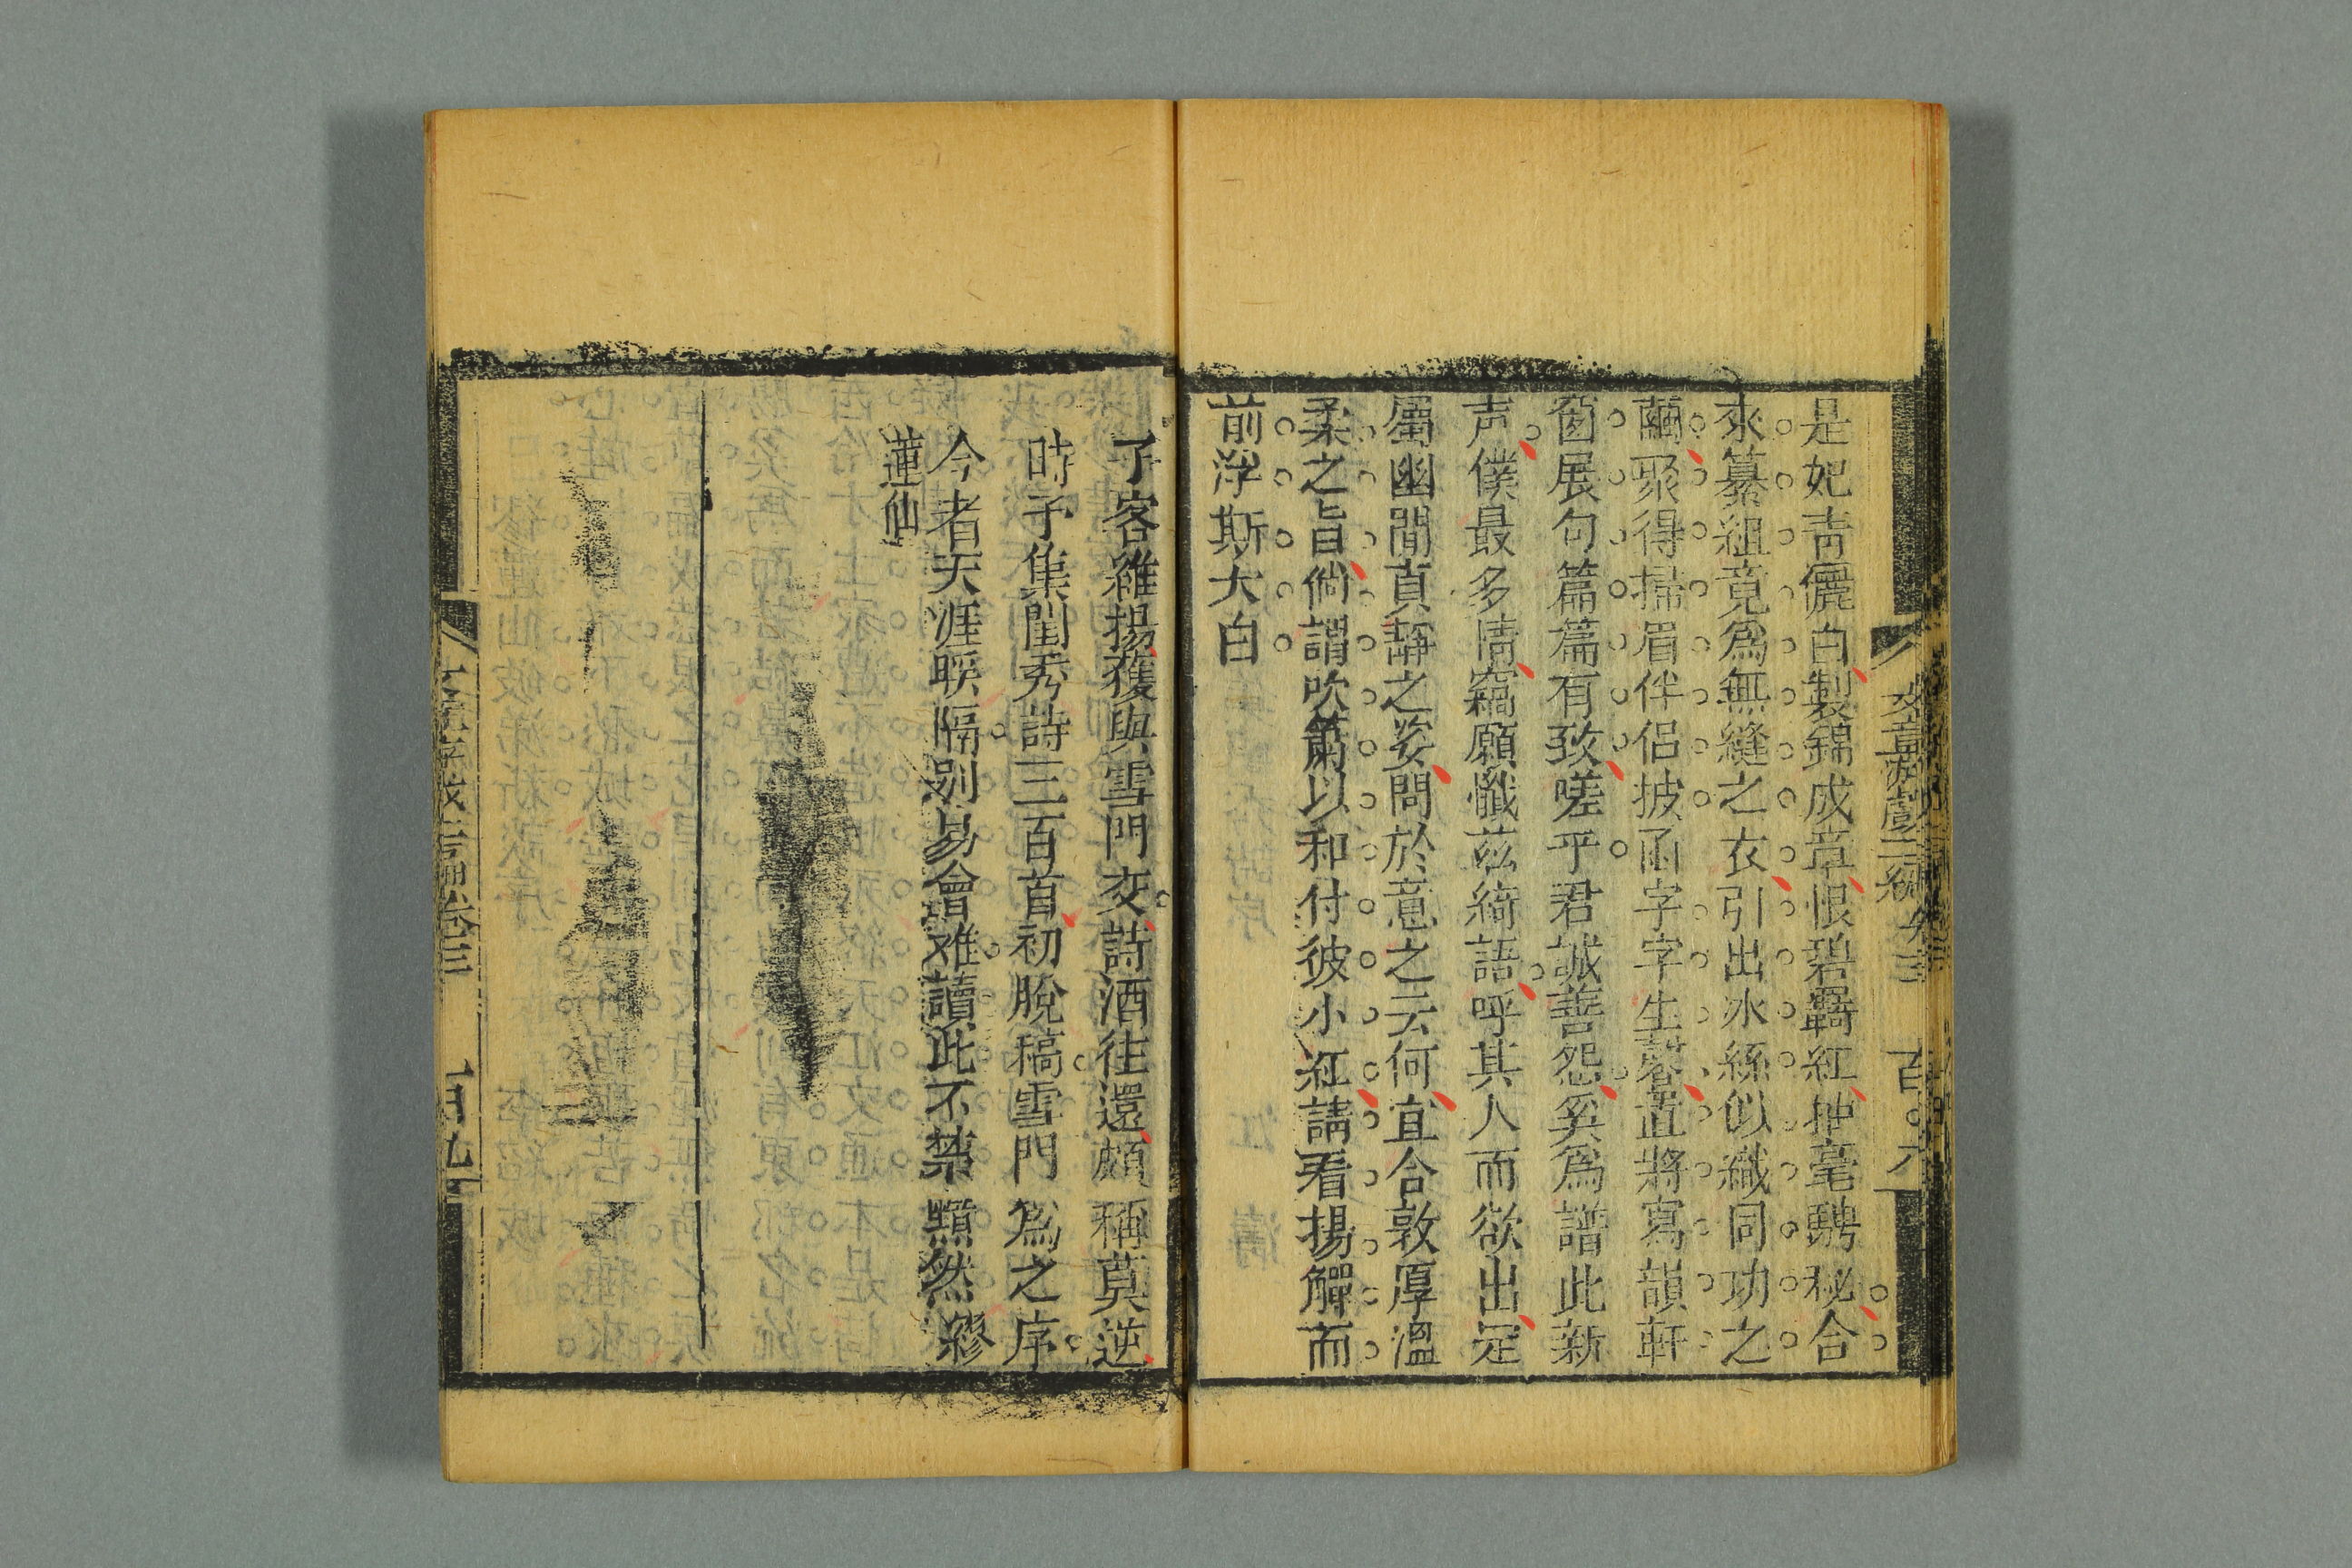 文章游戲二編 卷三 百〇六
是妃青儷白製錦成章恨碧羇紅抽毫騁秘合
來纂組竟爲無縫之衣引出氷絲似織同功之
繭聚得掃眉伴侶披函字字生馨置將寫韻軒
窗展句篇篇有致嗟乎君誠善怨奚爲譜此新
声僕最多情竊願懺茲綺語呼其人而欲出定
屬幽閒真靜之姿問於意之云何宜合敦厚溫
柔之旨倘謂吹簫以和付彼小紅請看揚觶而
前浮斯大白
予客維揚獲與雪門交詩酒往還頗稱莫逆
時予集閨秀詩三百首初脫稿雪門爲之序
今者天涯睽隔別易會难讀此不禁黯然 繆
蓮仙
卷三